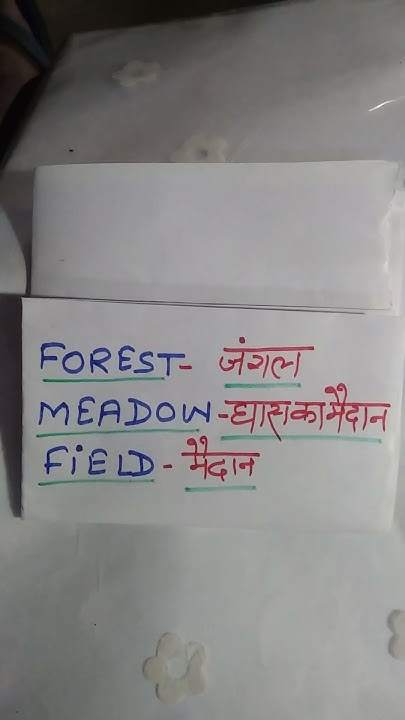 FOREST- जंगल
MEADOW-घास का मैदान
FiELD- मैदान